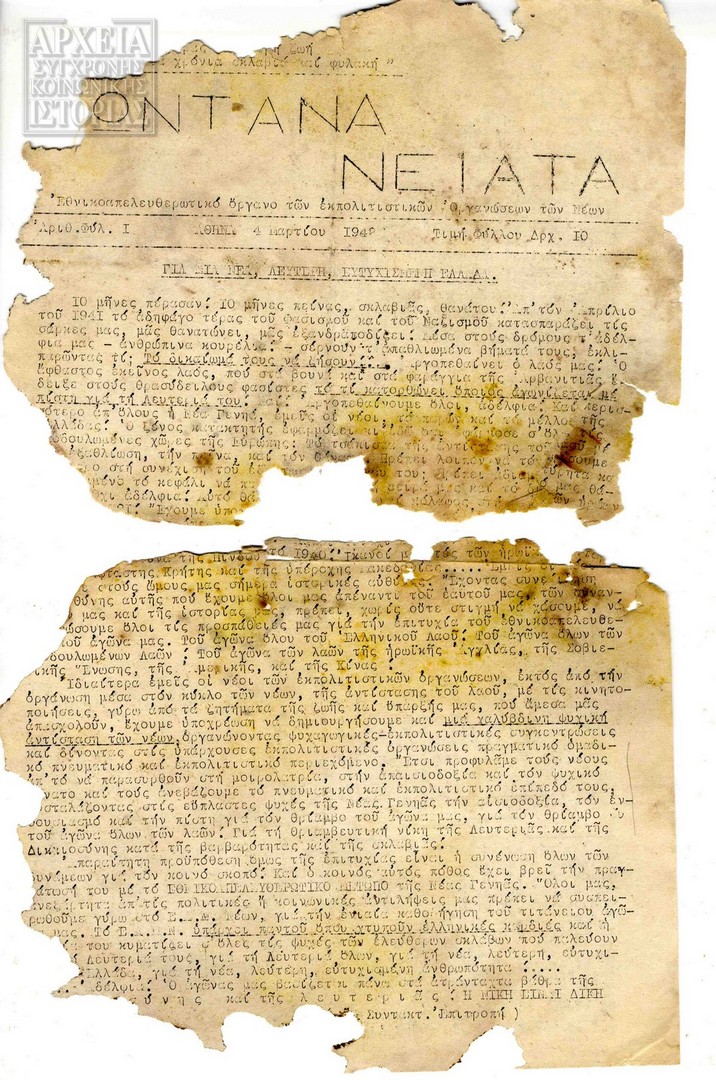 ΑΡΧΕΙΑ
ΣΥΓΧΡΟΝΗΣ
ΚΟΙΝΩΝΙΚΗΣ
ΙΣΤΟΡΙΑΣ
ζωή
χρόνια σκλαβιά καί φυλακή"
ΩΝΤΑΝΑ
ΝΕΙΑΤΑ
Ἐθνικοαπελευθερωτικό ὄργανο τῶν ἐκπολιτιστικῶν Ὀργανώσεων τῶν Νέων
Ἀριθ.Φύλ. Ι ΑΘΗΝΑ 4 Μαρτίου 194 Τιμή Φύλλου Δρχ. ΙΟ
ΓΙΑ ΜΙΑ ΝΕΑ, ΛΕΥΤΕΡΗ, ΕΥΤΥΧΙΣΜΕΝΗ ΕΛΛΑΔΑ.
ΙΟ μῆνες πέρασαν. ΙΟ μῆνες πείνας, σκλαβιᾶς, θανάτου. Ἀπ'τόν Ἀπρίλιο
τοῦ 1941 τό ἀδηφάγο τέρας τοῦ Φασισμοῦ καί τοῦ Ναζισμοῦ κατασπαράζει τίς
σάρκες μας, μᾶς θανατώνει, μᾶς ἐξανδραποδίζει. Μέσα στούς δρόμους τ'ἀδέλ-
φια μας - ἀνθρώπινα κουρέλια - σέρνουν τ'ἀπαθλιωμένα βήματά τους, ἐκλι-
παρῶντας τί; Τό δικαίωμά τους νά ζήσουν!... Ἀργοπεθαίνει ὁ λαός μας. Ὁ
ἄφθαστος ἐκεῖνος λαός, πού στά βουνά καί στά φαράγγια τῆς Ἀρβανιτιᾶς ἔ-
δειξε στούς θρασύδειλους φασίστες τό τί κατορθώνει ὅποιος ἀγωνίζεται μέ
πίστη γιά τή Λευτεριά του. Ἀργοπεθαίνουμε ὅλοι, ἀδέλφια. Καί περισ-
σότερο ἀπ'ὅλους ἡ Νέα Γενηά, ἐμεῖς οἱ νέοι, τό παρόν καί τό μέλλο τῆς
λλάδας. Ὁ ξένος κατακτητής ἐφαρμόζει σ'ὅλες
οδουλωμένες χῶρες τῆς Εὐρώπης. Τό τσάκισμα τῆς ἀντίστασης τοῦ λαοῦ
ἐξαθλίωση, τήν πεῖνα, καί τόν θάνατο. Πρέπει λοιπόν νά
στή συνέχιση τοῦ
μένο τό κεφάλι νά
χι ἀδέλφια. Αὐτό
Ἔχουμε
τῆς Πίνδου τό 1940. Ἱκανοί τῶν
φταστης Κρήτης καί τῆς ὑπέροχης Μακεδονίας..... Ἐμεῖς
στούς ὤμους μας σήμερα ἱστορικές Ἔχοντας συνείδηση
θύνης αὐτῆς πού ἔχουμε ὅλοι μας ἀπέναντι τοῦ ἑαυτοῦ μας, τῶν συναν-
μας καί τῆς ἱστορίας μας, πρέπει, χωρίς οὔτε στιγμή νά χάσουμε, νά
ώσουμε ὅλοι τίς προσπάθειές μας γιά τήν ἐπιτυχία τοῦ ἐθνικοαπελευθε-
τοῦ ἀγῶνα μας. Τοῦ ἀγῶνα ὅλου τοῦ Ἑλληνικοῦ Λαοῦ. Τοῦ ἀγῶνα ὅλων τῶν
οδουλωμένων Λαῶν. Τοῦ ἀγῶνα τῶν λαῶν τῆς ἡρωϊκῆς Ἀγγλίας, τῆς Σοβιε-
ικῆς Ἕνωσης, τῆς μερικῆς, καί τῆς Κίνας.
Ἰδιαίτερα ἐμεῖς οἱ νέοι τῶν ἐκπολιτιστικῶν ὀργανώσεων, ἐκτός ἀπό τήν
ὀργάνωση μέσα στόν κύκλο τῶν νέων, τῆς ἀντίστασης τοῦ λαοῦ, μέ τίς κινητο-
ποιήσεις, γύρω ἀπό τά ζητήματα τῆς ζωῆς καί ὕπαρξής μας, πού ἄμεσα μᾶς
ἀπασχολοῦν, ἔχουμε ὑποχρέωση νά δημιουργήσουμε καί μιά χαλύβδινη ψυχική
ἀντίσταση τῶν νέων, ὀργανώνοντας ψυχαγωγικές-ἐκπολιτιστικές συγκεντρώσεις
καί δίνοντας στίς ὑπάρχουσες ἐκπολιτιστικές ὀργανώσεις πραγματικό ὁμαδι-
κό πνευματικό καί ἐκπολιτιστικό περιεχόμενο. Ἔτσι προφυλᾶμε τούς νέους
ἀπ'τό νά παρασυρθοῦν στή μοιρολατρία, στήν ἀπαισιοδοξία καί τόν ψυχικό
νατο καί τούς ἀνεβάζουμε τό πνευματικό καί ἐκπολιτιστικό ἐπίπεδό τους,
σταλάζοντας στίς εὔπλαστες ψυχές τῆς Νέας Γενηᾶς τήν αἰσιοδοξία, τόν ἐν-
ουσιασμό καί τήν πίστη γιά τόν θρίαμβο τοῦ ἀγῶνα μας, γιά τόν θρίαμβο
τοῦ ἀγῶνα ὅλων τῶν λαῶν. Γιά τή θριαμβευτική νίκη τῆς Λευτεριᾶς καί τῆς
Δικαιοσύνης κατά τῆς βαρβαρότητας καί τῆς σκλαβιᾶς.
παραίτητη προϋπόθεση ὅμως τῆς ἐπιτυχίας εἶναι ἡ συνένωση ὅλων τῶν
υνάμεων γιά τόν κοινό σκοπό. Καί ὁ κοινός αὐτός πόθος ἔχει βρεῖ τήν πραγ-
άτωσή του μέ τό ΕΘΝΙΚΟΑΠΕΛΕΥΘΕΡΩΤΙΚΟ ΜΕΤΩΠΟ τῆς Νέας Γενηᾶς. Ὅλοι μας,
ἀνεξάρτητα ἀπ'τίς πολιτικές ἤ κοινωνικές ἀντιλήψεις μας πρέπει νά συσπει-
ρωθοῦμε γύρω στό Ε.Α.Μ. Νέων, γιά τήν ἑνιαία καθοδήγηση τοῦ τιτάνειου ἀγῶ-
μας. Τό Ε.Α.Μ.Ν. ὑπάρχει παντοῦ ὅπου χτυποῦν ἑλληνικές καρδιές καί ἡ
του κυματίζει σ'ὅλες τίς ψυχές τῶν ἐλεύθερων σκλάβων πού παλεύουν
Λευτεριά τους, γιά τή Λευτεριά ὅλων, γιά τή νέα, λεύτερη, εὐτυχι-
Ἑλλάδα, γιά τή νέα, λεύτερη, εὐτυχισμένη ἀνθρωπότητα.....
δέλφια. Ὁ ἀγῶνας μας βασίζεται πάνω στά ἀτράνταχτα βάθρα τῆς
ύνης καί τῆς λευτεριᾶς. Η ΝΙΚΗ ΕΙΝΑΙ ΔΙΚΗ
Συντακτ. Ἐπιτροπή)